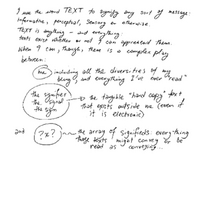 I use the word TEXT to signify any sort of message
informative, perceptual, sensory or otherwise.
TEXT is anything — and everything.
texts exist whether or not I can apprehend them.
When I can, though, there is a complex play
between:
me, including all the diversities of my
being, and everything I've ever "read"
the signifier
the signal
the sign
the tangible "hard copy" text
that exists outside me (even if
it is electronic)
and
?x?
the array of signifieds. everything
those texts might convey or be
read as conveying...